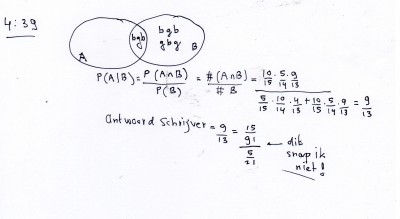 4:39
bgb
bgb
gbg
A
B
P(A|B) = P(A∩B) / P(B) = #(A∩B) / #B = (10/15 · 5/14 · 9/13) / (5/15 · 10/14 · 4/13 + 10/15 · 5/14 · 9/13) = 9/13
Antwoord Schrijver = 9/13 = (15/91) / (5/21) ← dik
snap ik
niet!